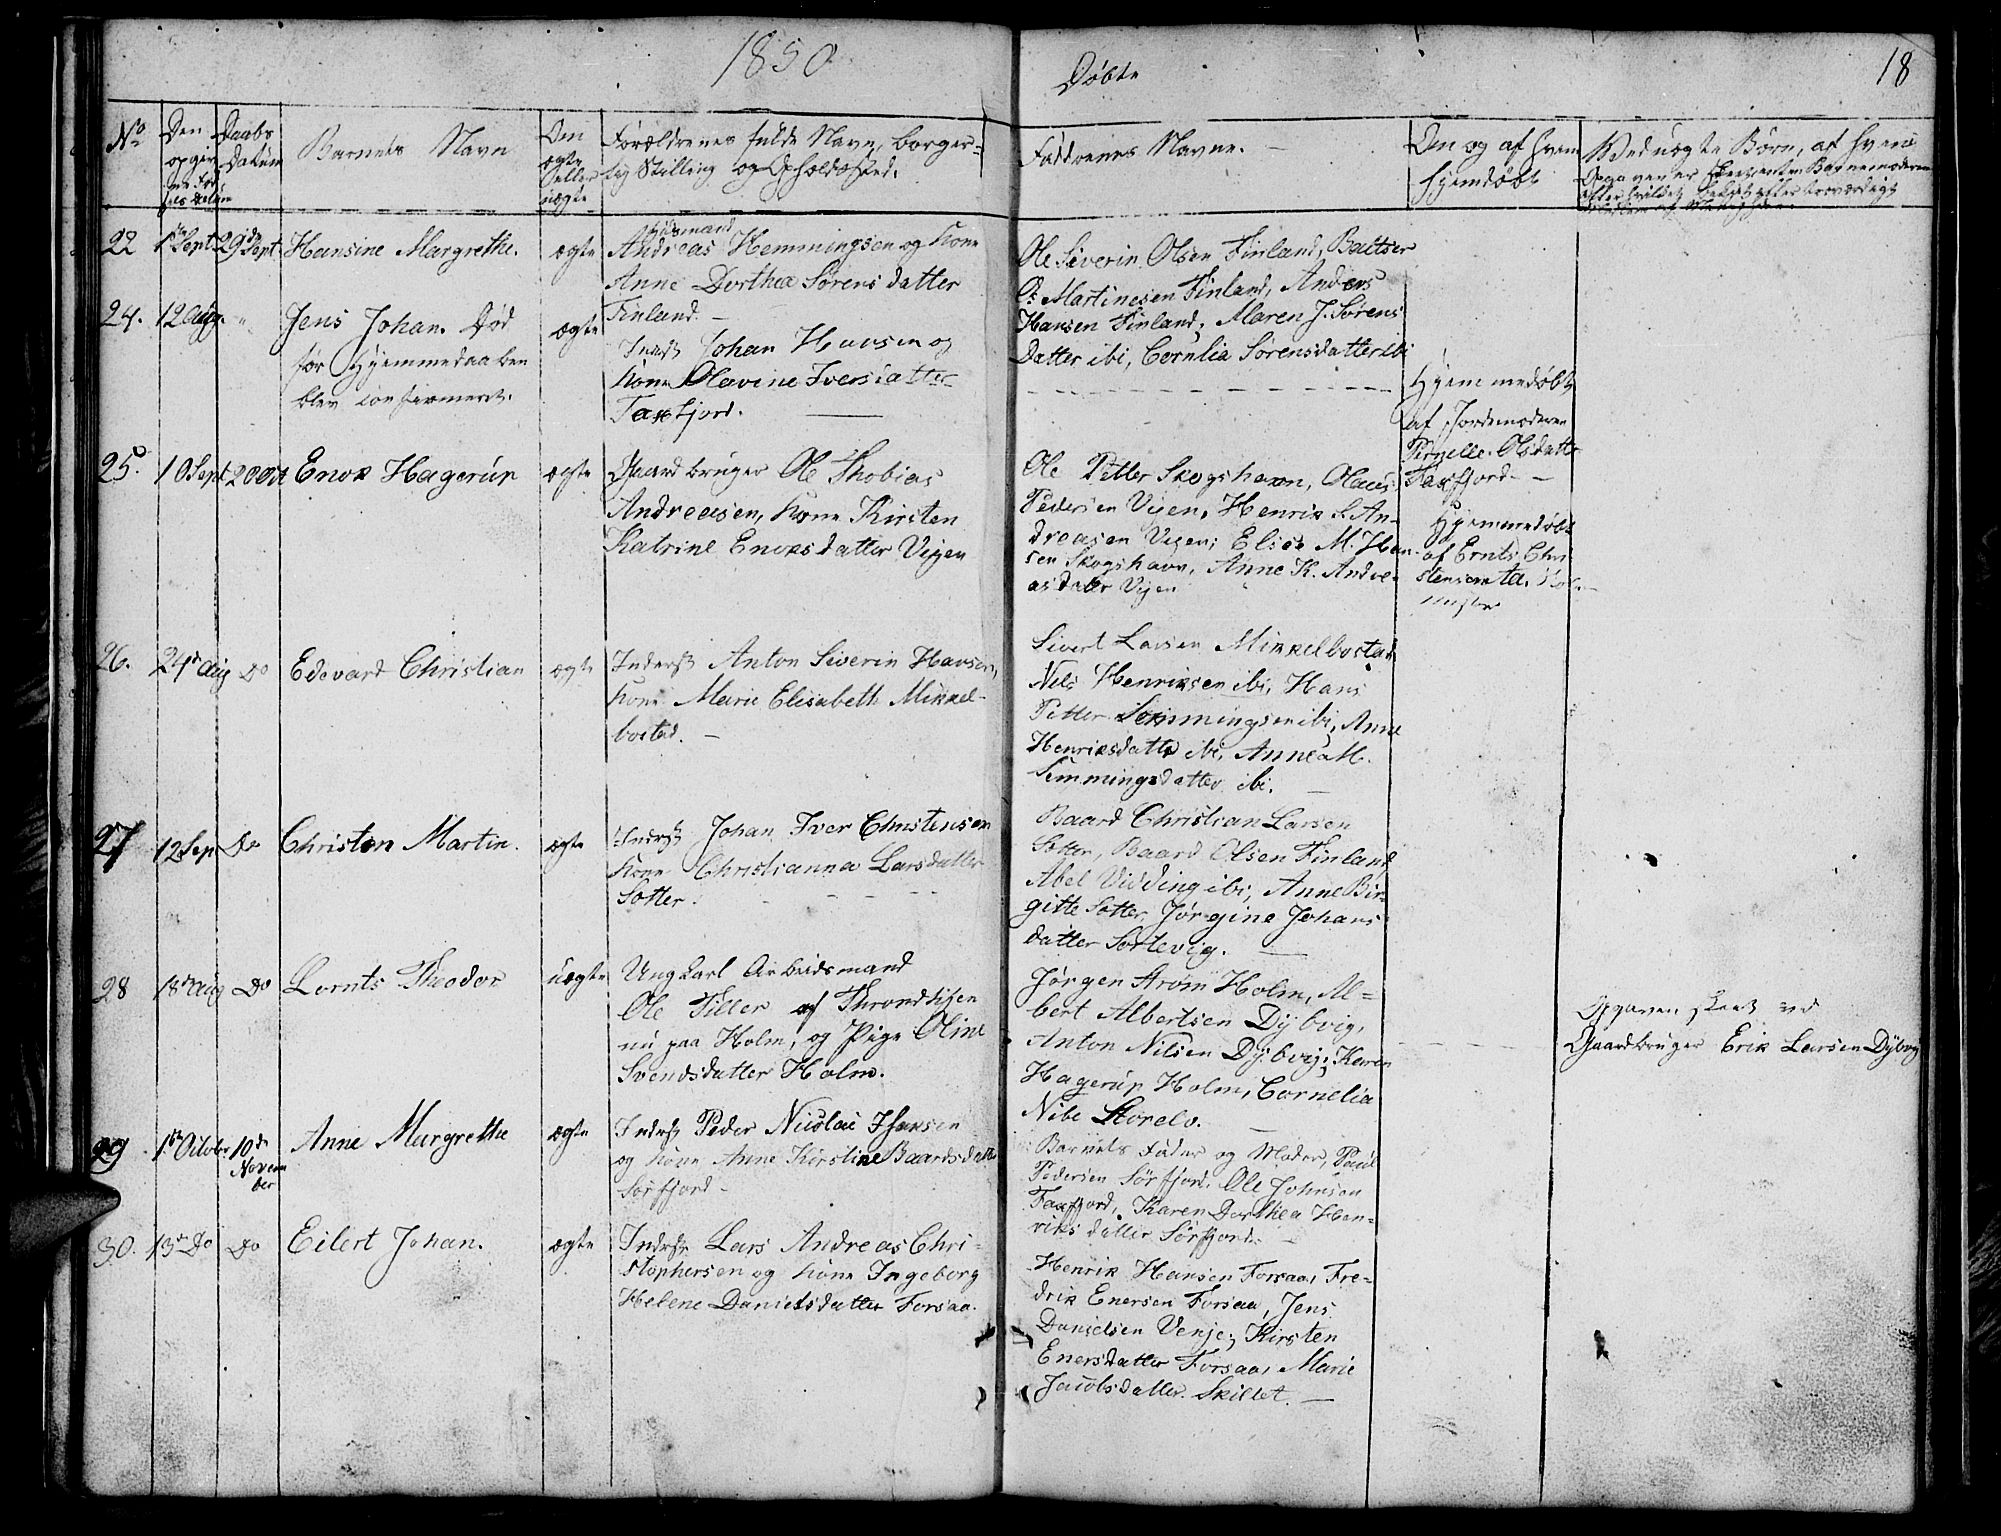 1850
Döbte
18
No
Den
opgiv
ne Fød
sels Datum
Daabs
Datum
Barnets Navn
Om
ægte
eller
uægte
Forældrenes fulde Navn, borger-
lig Stilling og Opholdssted.
Faddrenes Navne. -
Om og af hvem
hjemdöbt
Ved uægte Börn, af hvem
Opgaven er skeet
22 1ste Sept 29de Sept Hansine Margrethe. ægte
Huusmand
Andreas Hemmingsen og Kone
Anne Dorthea Sörensdatter
Finland. -
Ole Siverin Olsen Finland, Baltser
O. Martinesen Finland, Anders
Hansen Finland, Maren J. Sörens
Datter ibi, Cornlia Sörensdatter ibi
24. 12 Aug. " Jens Johan. Död
før Hjemmedaaben
blev confirmeret.
ægte
Inds Johan Hansen og
Kone Olavine Iversdatter
Faxfjord. -
Hjemmedöbt
af Jordemoderen
Pernelle Olsdatter
Faxfjord -
25. 10 Sept 20 Oct Enok Hagerup ægte
Gaardbruger Ole Thobias
Andreasen, Kone Kirsten
Katrine Enoksdatter Vigen
Ole Petter Skogshavn, Olaus
Pedersen Vigen, Henrik S. An-
dreasen Vigen; Elise M. Han-
sen Skogshavn, Anne K. Andre-
asdatter Vigen
Hjemmedöbt
af Ernts Chri
stensen
26. 24de Aug Do Edevard Christian ægte
Inderst Anton Siverin Hansen,
Kone Marie Elisabeth Mikkel-
bostad. -
Sivert Larsen Mikkelbostad
Nils Henriksen ibi, Hans
Petter Semmingsen ibi, Anne
Henriksdatter ibi, Anne M.
Semmingsdatter ibi. -
27 12 Sep Do Christen Martin. ægte
Inderst Johan Iver Christensen
Kone Christianna Larsdatter
Sotter.
Baard Christian Larsen
Sotter, Baard Olsen Finland,
Abel Vidding ibi, Anne Bir-
gitte Sotter, Jörgine Johans
datter Sortevig.
28 18de Aug Do Lornts Theodor uægte
Ungkarl Arbeidsmand
Ole Tiller af Throndhjem
nu paa Holm, og Pige Oline
Svendsdatter Holm.
Jörgen Holm, Al-
bert Albertsen Dybvig,
Anton Nilsen Dybvig; Karen
Hagerup Holm, Cornelia
Nibe Storelv.
Opgaven skeet ved
Gaardbruger Erik Larsen Dybvig
29 1ste Octobr 10de
Novem
ber
Anne Margrethe ægte
Inderst Peder Nicolai Hansen
og Kone Anne Kirstine Baardsdatter
Sörfjord -
Barnets Fader og Moder, Paul
Pedersen Sörfjord, Ole Johnsen
Faxfjord, Karen Dorthea Hen-
riksdatter Sörfjord.
30. 13de Do Do Eilert Johan. ægte
Inderst Lars Andreas Chri-
stophersen og Kone Ingeborg
Helene Danielsdatter Forsaa.
Henrik Hansen Forsaa, Fre-
drik Enersen Forsaa, Jens
Danielsen Venje; Kirsten
Enersdatter Forsaa, Marie
Jacobsdatter Skillet. -